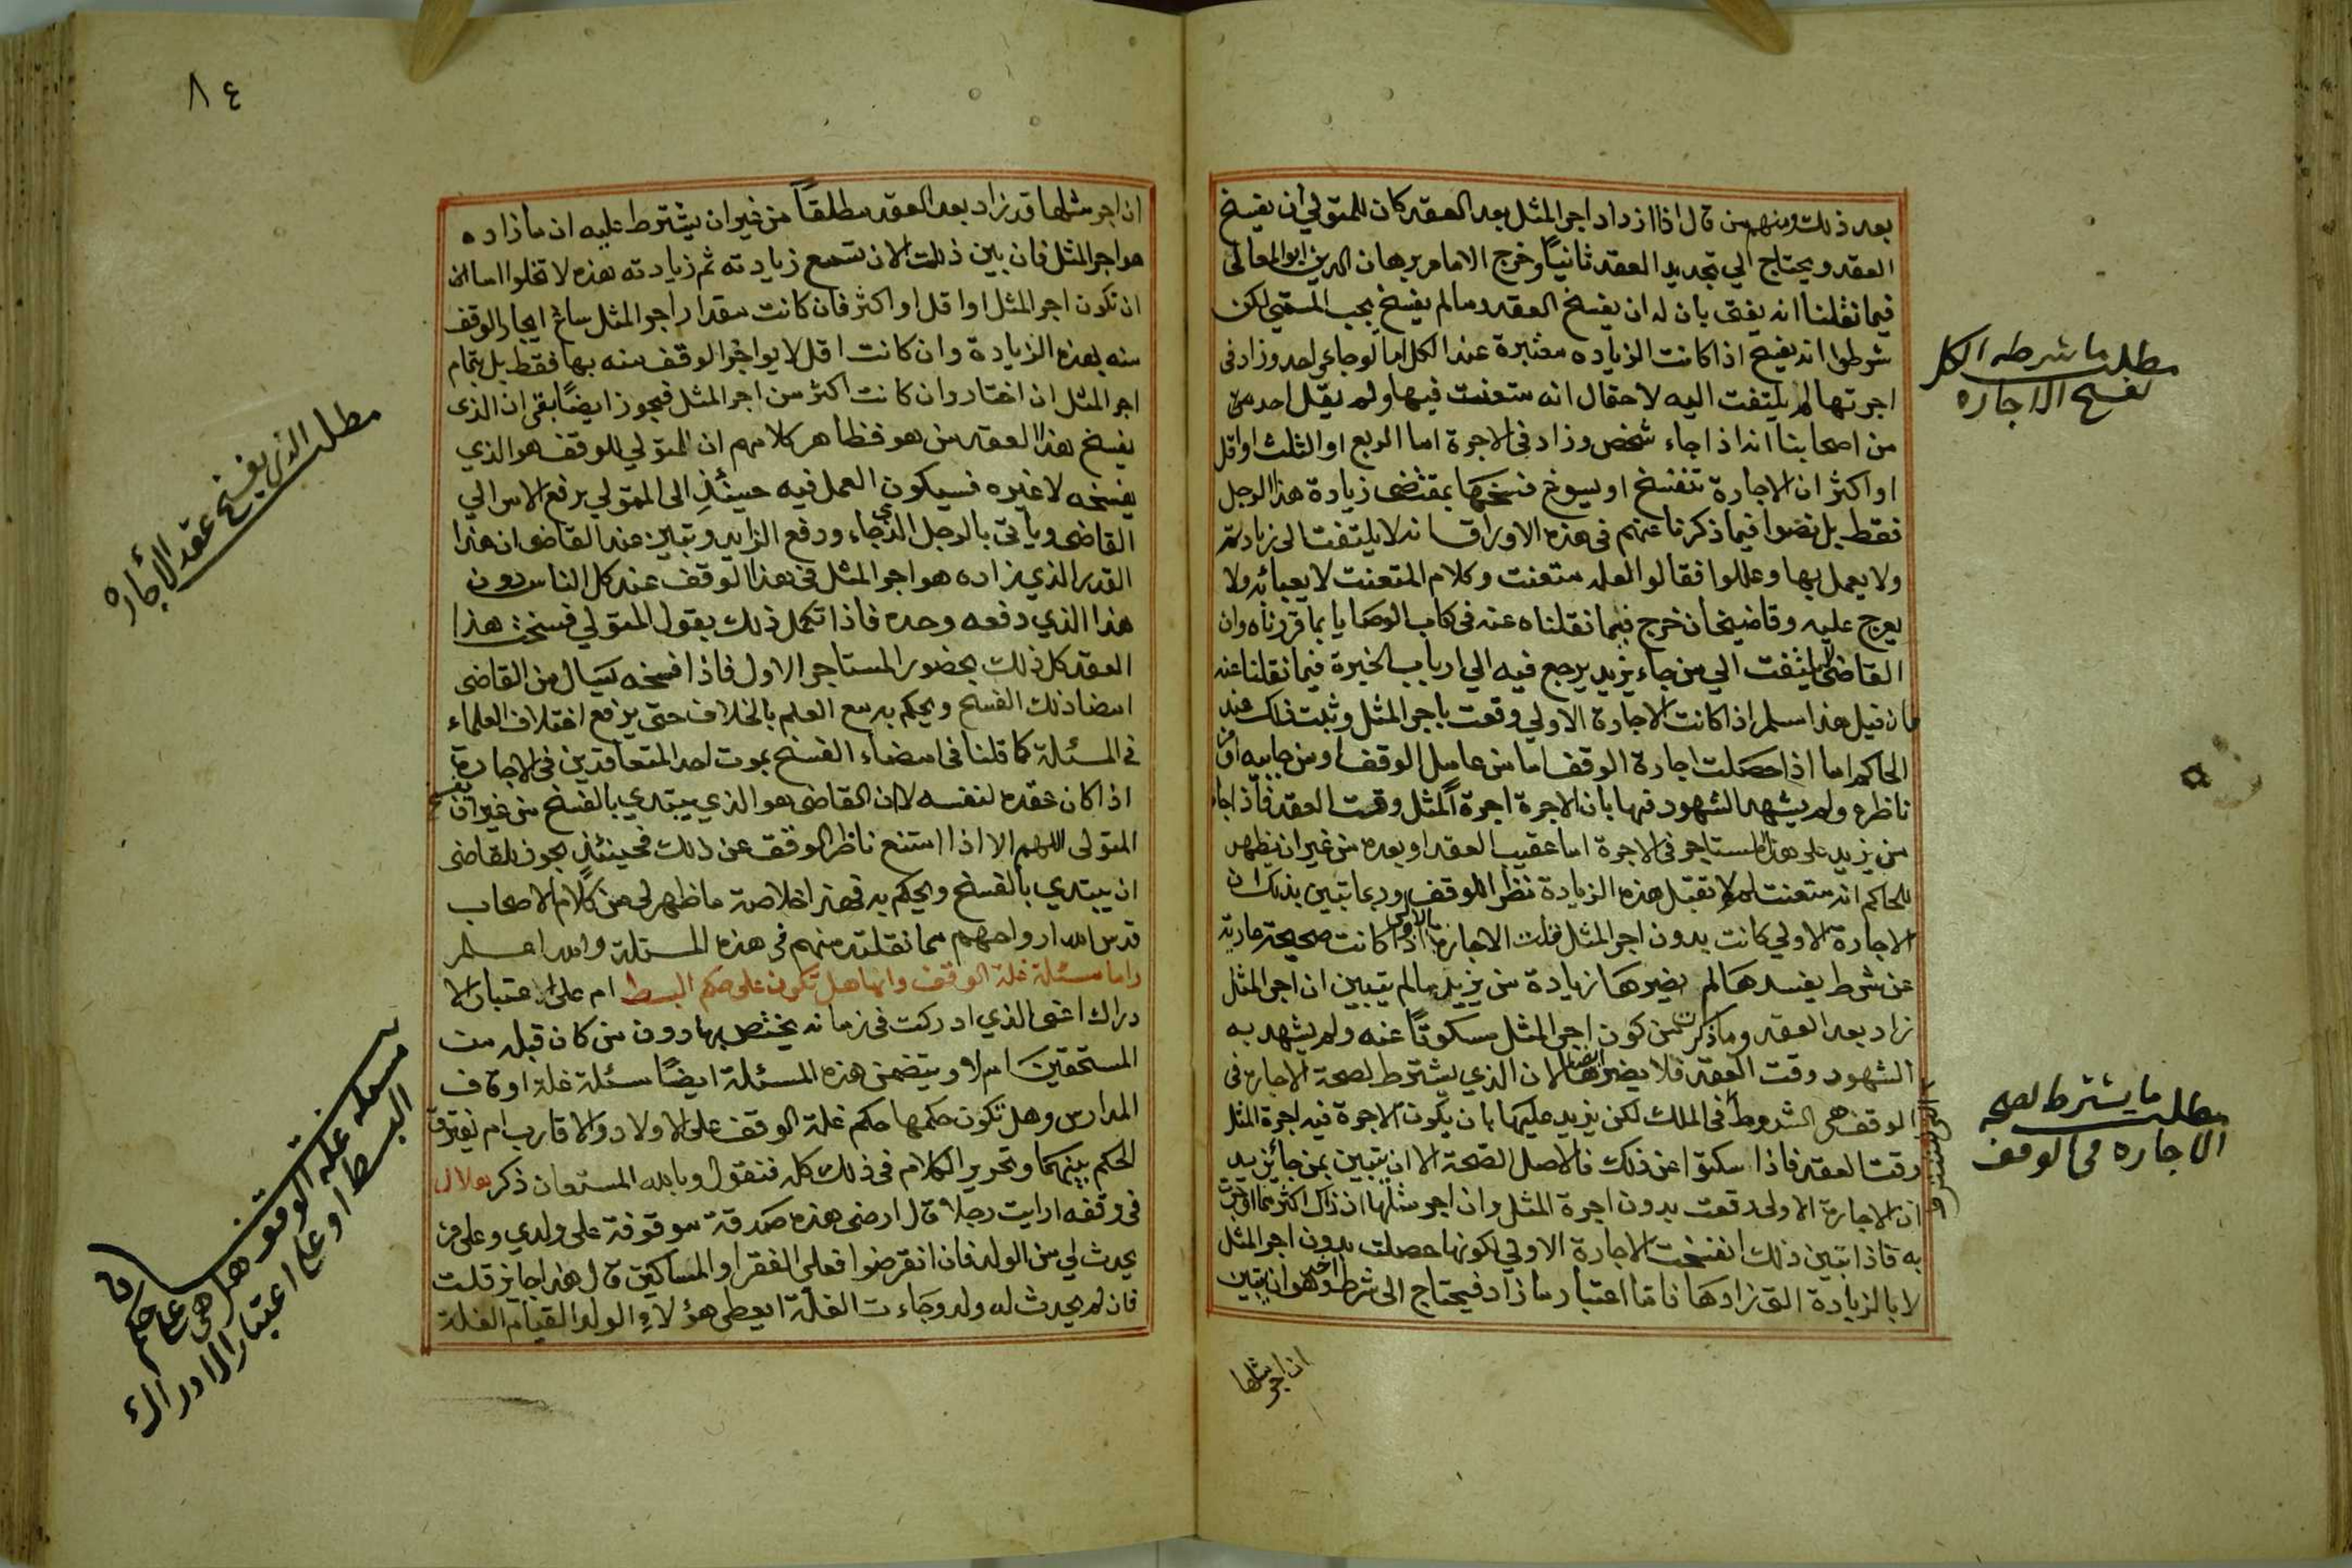 بعد ذلك ومنهم من قال اذا ازداد اجر المثل بعد العقد كان للمتولي أن يفسخ
العقد ويحتاج الي تجديد العقد ثانياً وخرج الامام برهان الدين ابو المعالى
فيما نقلنا انه يفتى بان له ان يفسخ العقد وما لم يفسخ يجب المسمي لكن
شرطوا انه يفسخ اذا كانت الزياده معتبرة عند الكل اما لو جاء احد وزاد فى
اجرتها لم يلتفت اليه لاحتمال انه متعنت فيها ولم يقل احد من
من اصحابنا انه اذا جاء شخص وزاد فى الاجرة اما الربع او الثلث او اقل
او اكثر ان الاجارة تنفسخ او يسوغ فسخها بمقتضى زيادة هذا الرجل
فقط بل نصوا فيما ذكرنا عنهم فى هذه الاوراق انه لا يلتفت الى زيادته
ولا يعمل بها وعللوا فقالوا لعله متعنت وكلام المتعنت لا يعبا به ولا
يعرج عليه وقاضيخان خرج فيما نقلناه عنه فى كتاب الوصايا بما قررناه وان
القاضى لا يلتفت الي من جاء يزيد يرجع فيه الي ارباب الخبرة فيما نقلنا عنه
فان قيل هذا اسلم اذا كانت الاجارة الاولي وقعت باجر المثل وثبت ذلك عند
الحاكم اما اذا حصلت اجارة الوقف اما من عامل الوقف او من جابيه او من
ناظره ولم يشهد الشهود فيها بان الاجرة اجرة المثل وقت العقد فاذا جاء
من يزيد على هذا المستاجر فى الاجرة اما عقيب العقد او بعده من غير ان يظهر
للحاكم انه متعنت لم لا تقبل هذه الزيادة نظرا للوقف وربما تبين بذلك ان
الاجارة الاولي كانت بدون اجر المثل قلت الاجارة الاولى اذا كانت صحيحة عارية
عن شرط يفسدها لم يضرها زيادة من يزيد ما لم يتبين ان اجر المثل
زاد بعد العقد وما ذكرت من كون اجر المثل مسكوتاً عنه ولم يشهد به
الشهود وقت العقد فلا يضر ايضا لان الذي يشترط لصحة الاجارة فى
الوقف هى الشروط فى الملك لكن يزيد عليها بان يكون الاجرة فيه اجرة المثل
وقت العقد فاذا سكتوا عن ذلك فالاصل الصحة الا ان يتبين بمن جا يزيد
ان الاجارة الاولى وقعت بدون اجرة المثل وان اجر مثلها اذ ذاك اكثر مما اوجرت
به فاذا تبين ذلك انفسخت الاجارة الاولي لكونها حصلت بدون اجر المثل
لا بالزيادة التى زادها فاما اعتبار ما زاد فيحتاج الى شرط اخر وهو ان يتبين
ان اجر مثلها
مطلب ما شرطه الكل
لفسخ الاجاره
مطلب ما يشترط لصحة
الاجاره فى الوقف
٨٤
ان اجر مثلها قد زاد بعد العقد مطلقاً من غير ان يشترط عليه ان ما زاده
هو اجر المثل فان بين ذلك الان تسمع زيادته ثم زيادته هذه لا تخلوا اما ان
ان تكون اجر المثل او اقل او اكثر فان كانت مقدار اجر المثل ساغ ايجار الوقف
منه بهذه الزيادة وان كانت اقل لا يواجر الوقف منه بها فقط بل بتمام
اجر المثل ان اختار وان كانت اكثر من اجر المثل فيجوز ايضاً بقى ان الذى
يفسخ هذا العقد من هو فظاهر كلامهم ان المتولي للوقف هو الذي
يفسخه لا غيره فسيكون العمل فيه حينئذِ الى المتولي يرفع الامر الي
القاضى وياتى بالرجل الذى جاء ودفع الزايد وتبين عند القاضى ان هذا
القدر الذي زاده هو اجر المثل فى هذا الوقف عند كل الناس دون
هذا الذي دفعه وحده فاذا تكمل ذلك يقول المتولي فسخت هذا
العقد كل ذلك بحضور المستاجر الاول فاذا فسخه يسال من القاضى
امضا ذلك الفسخ ويحكم به مع العلم بالخلاف حتى يرفع اختلاف العلماء
فى المسئلة كما قلنا فى امضاء الفسخ بموت احد المتعاقدين فى الاجارة
اذا كان عقده لنفسه لا ان القاضى هو الذي يبتدي بالفسخ من غير ان يفسخ
المتولى اللهم الا اذا امتنع ناظر الوقف عن ذلك فحينئذٍ يجوز للقاضى
ان يبتدي بالفسخ ويحكم به فهذا خلاصة ما ظهر لى من كلام الاصحاب
قدس الله ارواحهم مما نقلته منهم فى هذه المسئلة والله اعلم
واما مسئلة غلة الوقف وانها هل تكون على حكم البسط ام على اعتبار الا
دراك اعنى الذي ادركت فى زمانه يختص بها دون من كان قبله من
المستحقين ام لا ويتضمن هذه المسئلة ايضاً مسئلة غلة اوقاف
المدارس وهل تكون حكمها حكم غلة الوقف على الاولاد والاقارب ام يفترق
الحكم بينهما وتحرير الكلام فى ذلك كله فنقول وبالله المستعان ذكر هلال
فى وقفه ارايت رجلا قال ارضى هذه صدقة موقوفة على ولدي وعلى من
يحدث لي من الولد فان انقرضوا فعلى الفقرا والمساكين قال هذا جايز قلت
فان لم يحدث له ولد وجاءت الغلة ايعطى هؤلاءِ الولد القيام الغلة
مطلب الذى يفسخ عقد الأجاره
مسئلة غلة الوقف هل هى على حكم
البسط او على اعتبار الادراك